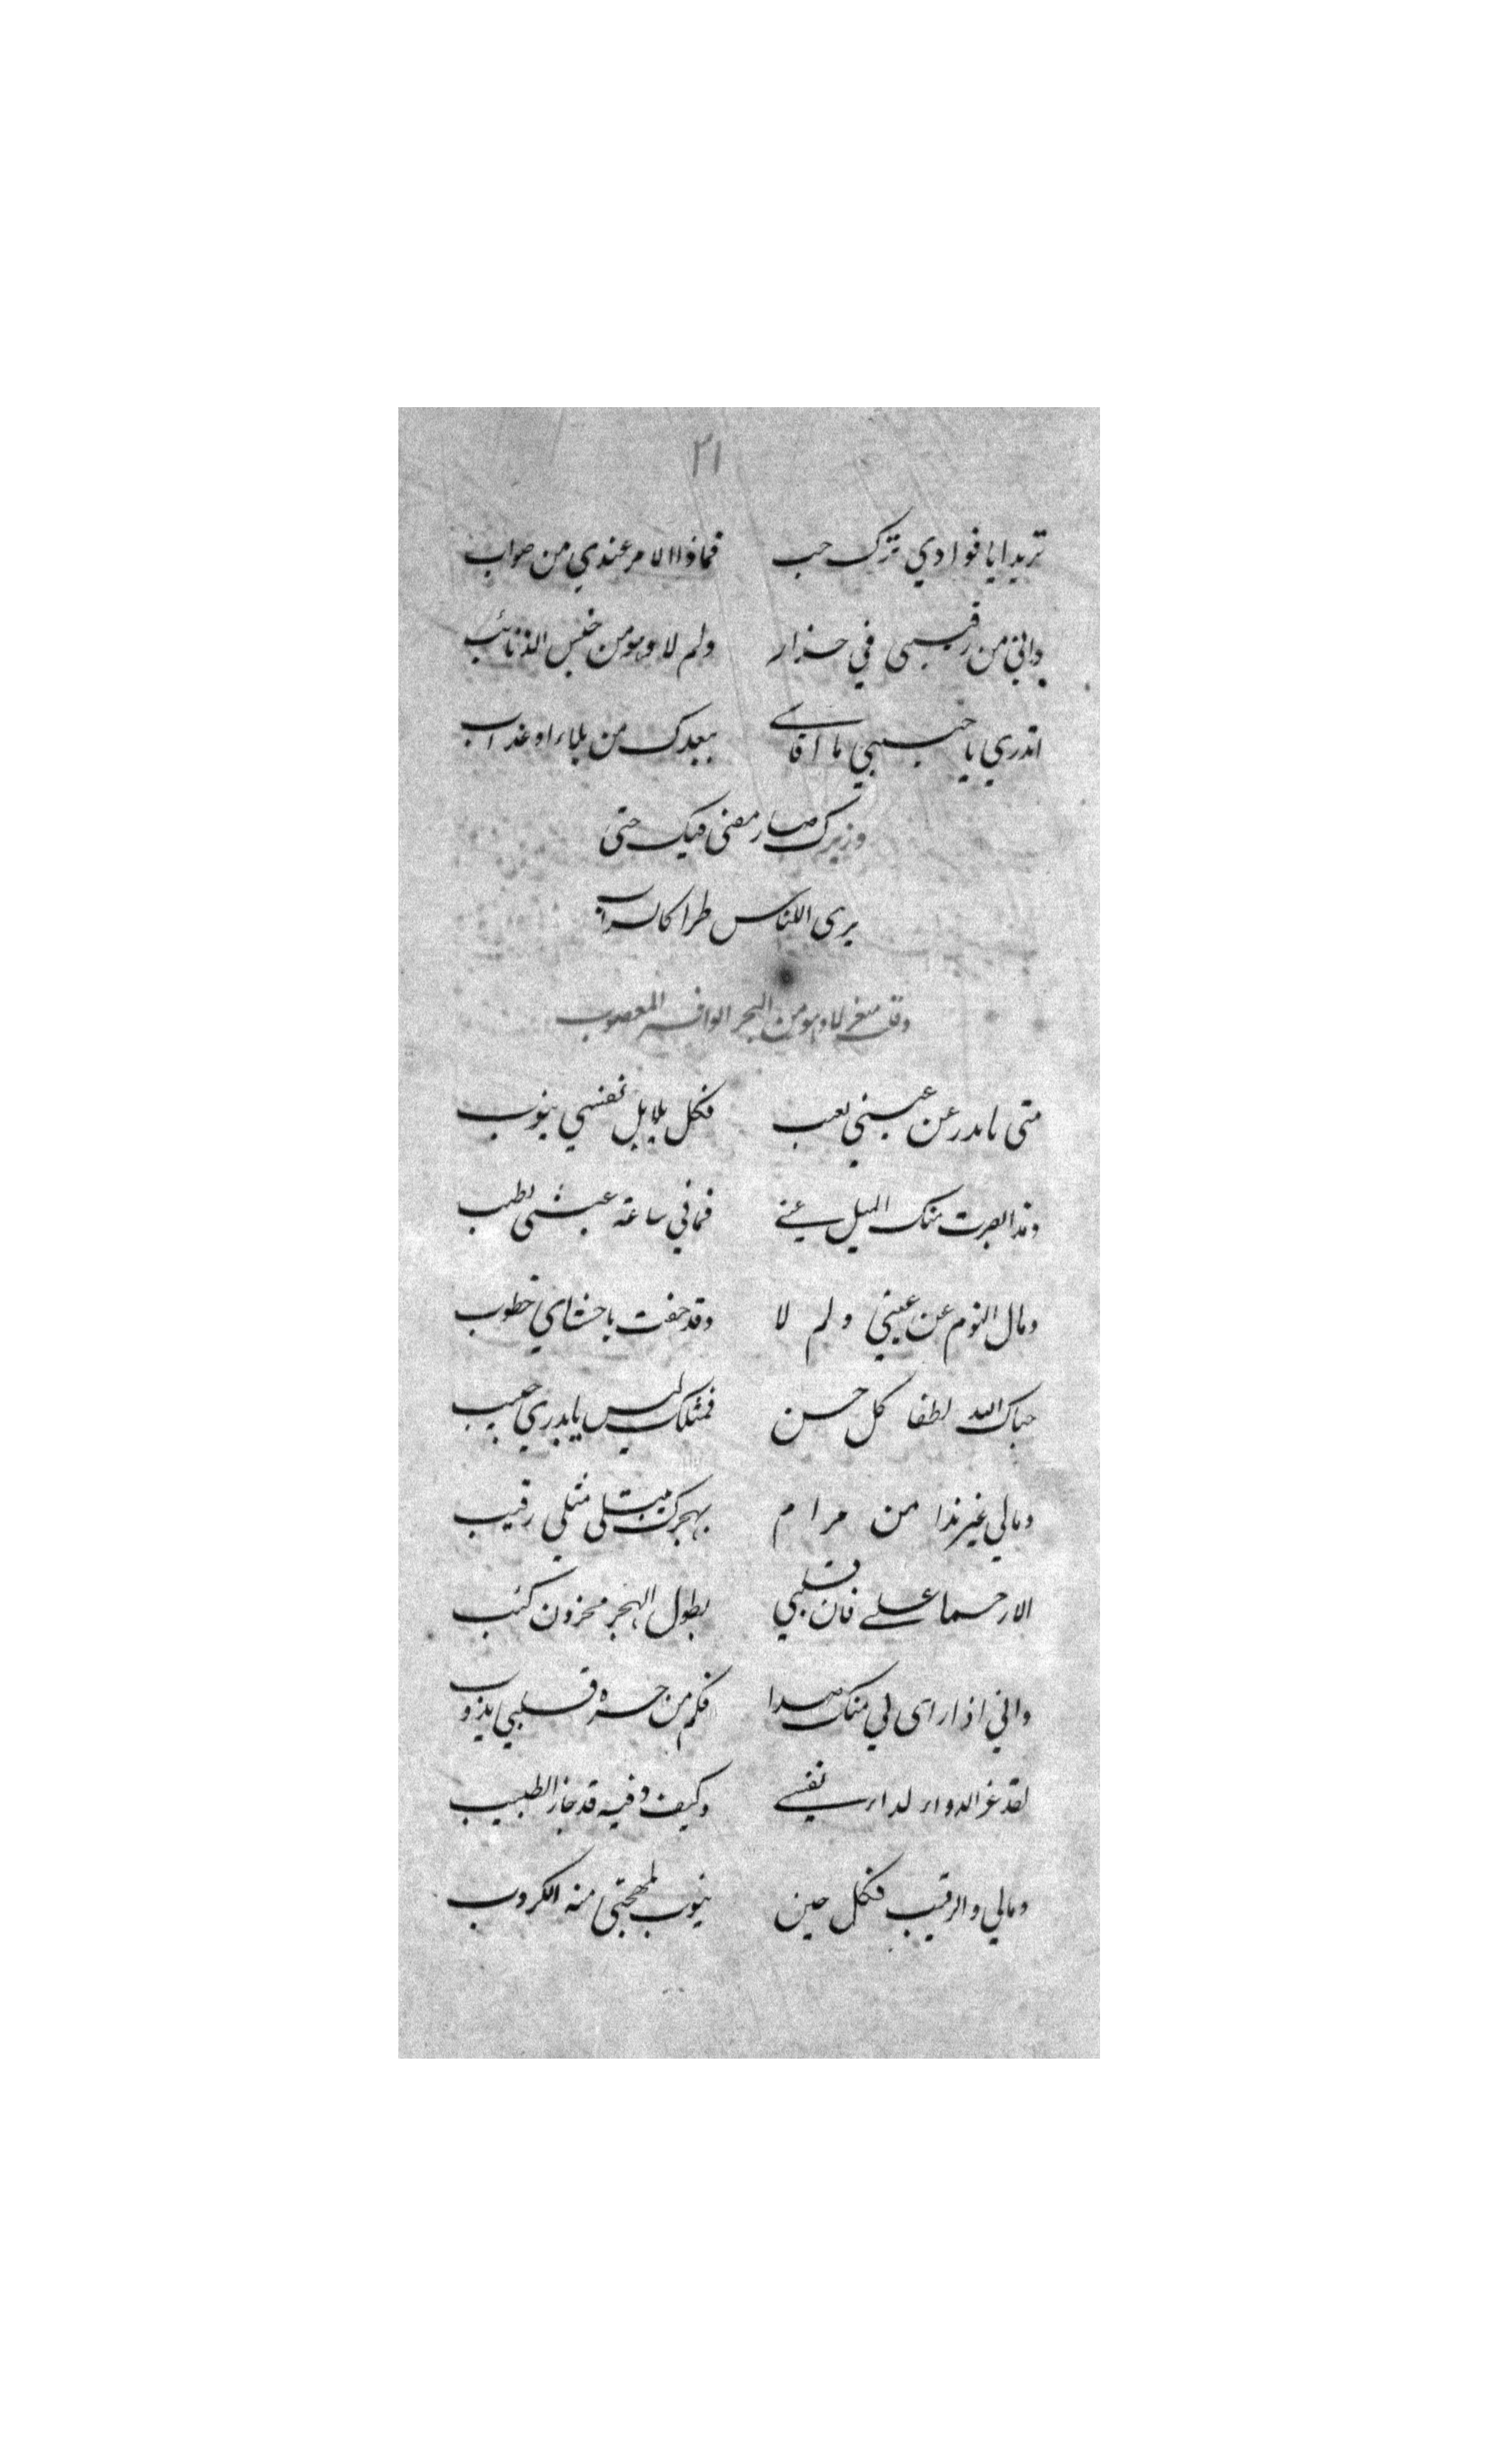 ٢١
تريد ايا فوادي ترك حب فماذا الامر عندي من صواب
واني من رقيبى في حذار ولم لا وهو من خبس الذئائب
اتدري يا حبيبي ما اقاسے ببعدك من بلاء او عذاب
وزيرك صار مضنى فيك حتى
يرى اللناس طرا كالسراب
وقلت متغزلا وهو من البحر الوافر المعصوب
متى يا بدر عن عيني تغب فكل بلابل نفسي ينوب
ومذ ابصرت منك الميل عنے فماني ساعة عيشى يطيب
ومال النوم عن عيني ولم لا وقد حفت باحشاي خطوب
حباك الله لطفا كل حسن فمثلك ليس يا بدري حبيب
ومالي غير هذا من مرام بهجرك مبتلى مثلي رقيب
الا رحما علے فان قلبي بطول الهجر محزون كئب
واني اذ ارى لي منك صدا فكم من حسره قلبي يذوب
لقد عز الدواء لداء نفسے وكيف وفيه قد حار الطبيب
ومالي والرقيب فكل حين ينوب لمهجتي منه الكروب